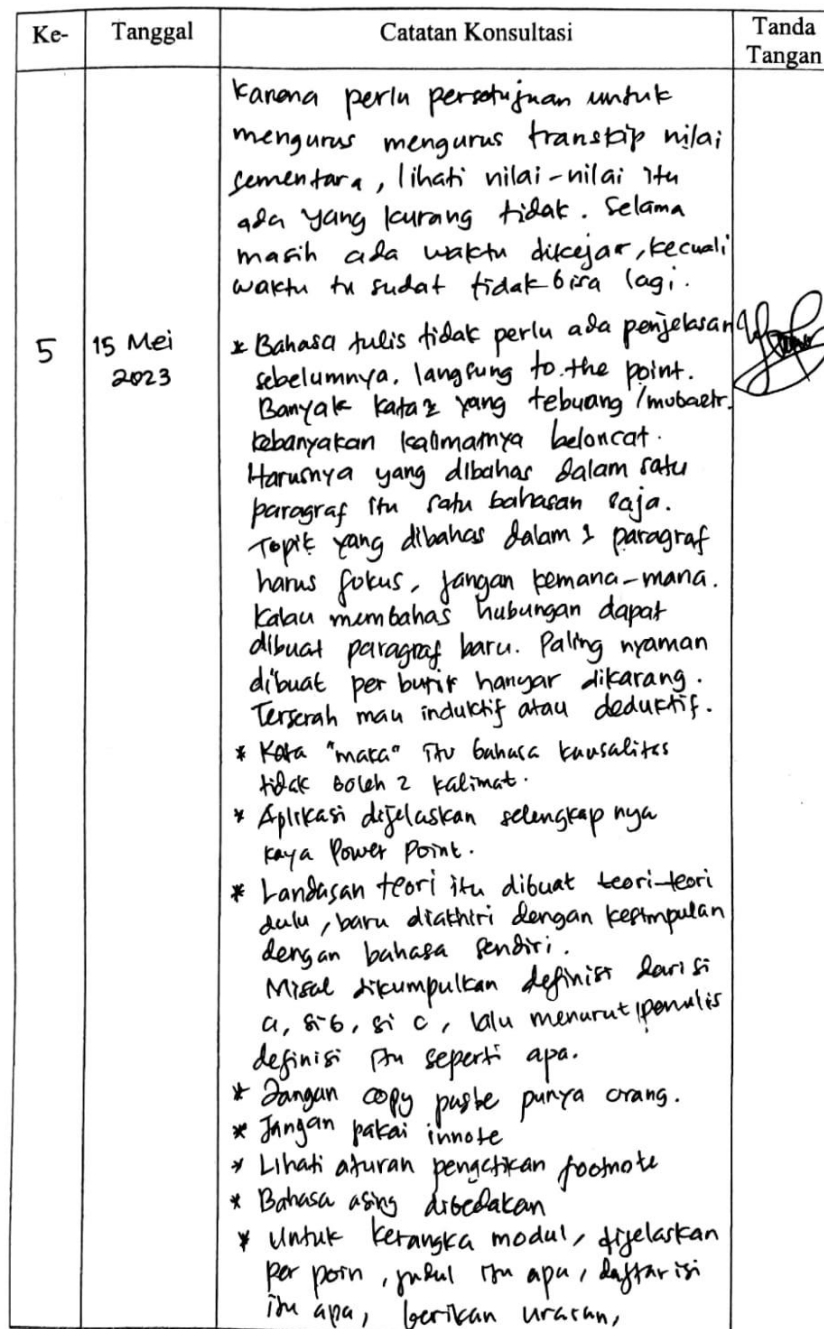 Ke-
Tanggal
Catatan Konsultasi
Tanda
Tangan
karena perlu persetujuan untuk
mengurus mengurus transkip nilai
sementara, lihati nilai-nilai itu
ada yang kurang tidak. Selama
masih ada waktu dikejar, kecuali
waktu tu sudat tidak bisa lagi.
5
15 Mei
2023
* Bahasa tulis tidak perlu ada penjelasan
sebelumnya. langsung to the point.
Banyak kata2 yang tebuang /mubaetr.
kebanyakan kalimatnya beloncat.
Harusnya yang dibahas dalam satu
paragraf itu satu bahasan saja.
Topik yang dibahas dalam 1 paragraf
harus fokus, jangan kemana-mana.
Kalau membahas hubungan dapat
dibuat paragraf baru. Paling nyaman
dibuat per butir hanyar dikarang.
Terserah mau induktif atau deduktif.
* Kata "maka" itu bahasa kausalitas
tidak boleh 2 kalimat.
* Aplikasi dijelaskan selengkap nya
kaya Power Point.
* Landasan teori itu dibuat teori-teori
dulu, baru diakhiri dengan kesimpulan
dengan bahasa sendiri.
Misal dikumpulkan definisi dari si
a, si b, si c, lalu menurut penulis
definisi itu seperti apa.
* Jangan copy paste punya orang.
* Jangan pakai innote
* Lihati aturan pengetikan footnote
* Bahasa asing dibedakan
* Untuk kerangka modul, dijelaskan
per poin, judul itu apa, daftar isi
itu apa, berikan uraian,